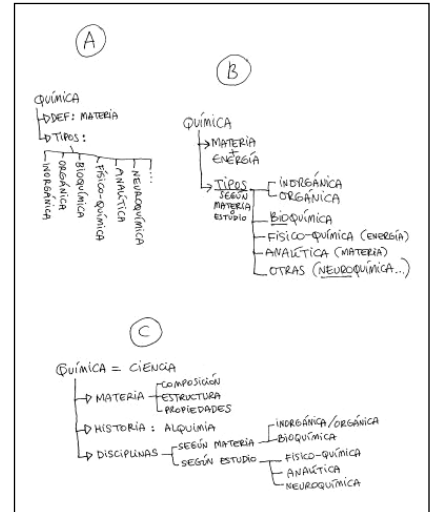 A
QUÍMICA
DEF: MATERIA
TIPOS:
INORGÁNICA
ORGÁNICA
BIOQUÍMICA
FÍSICO-QUÍMICA
ANALÍTICA
NEUROQUÍMICA
...
B
QUÍMICA
MATERIA
+
ENERGÍA
TIPOS
SEGÚN
MATERIA
O
ESTUDIO
INORGÁNICA
ORGÁNICA
BIOQUÍMICA
FÍSICO-QUÍMICA (ENERGÍA)
ANALÍTICA (MATERIA)
OTRAS (NEUROQUÍMICA...)
C
QUÍMICA = CIENCIA
MATERIA
COMPOSICIÓN
ESTRUCTURA
PROPIEDADES
HISTORIA: ALQUIMIA
DISCIPLINAS
SEGÚN MATERIA
INORGÁNICA/ORGÁNICA
BIOQUÍMICA
SEGÚN ESTUDIO
FÍSICO-QUÍMICA
ANALÍTICA
NEUROQUÍMICA